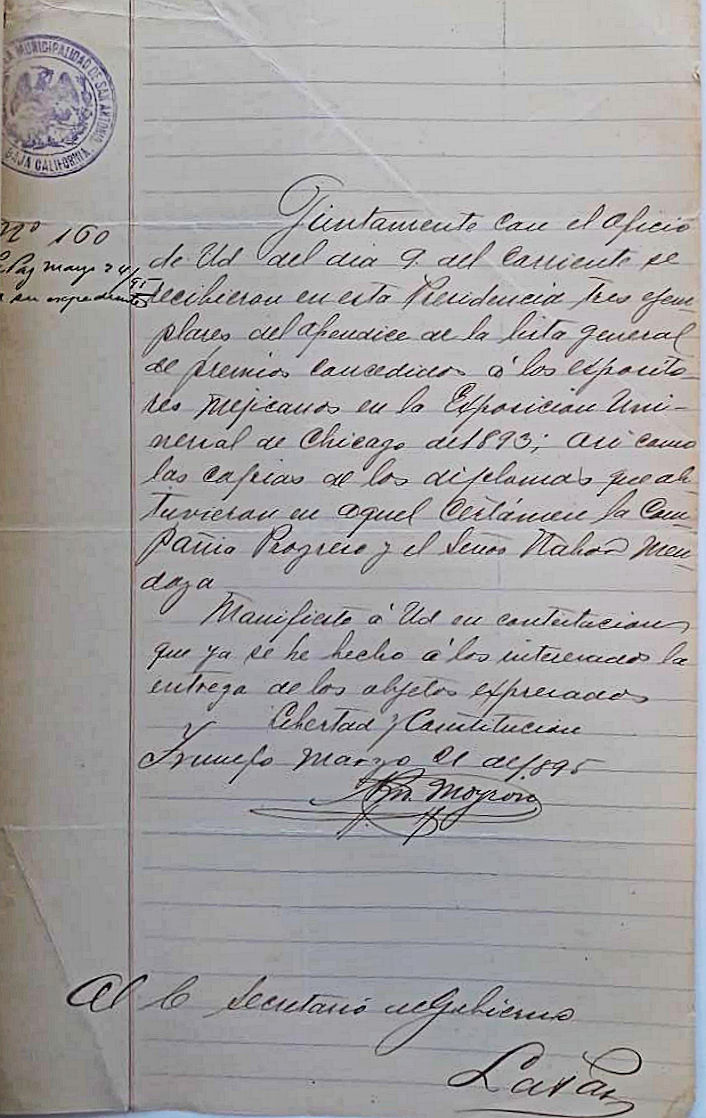 LA MUNICIPALIDAD DE SAN ANTONIO
BAJA CALIFORNIA
Nº 160
Paz marzo 24/95
su expediente
Juntamente con el oficio
de Ud del dia 9. del corriente se
recibieron en esta Presidencia tres ejem-
plares del apendice de la lista general
de premios concedidos á los exposito-
res mejicanos en la Exposicion Uni-
versal de Chicago de 1893; asi como
las copias de los diplomas que ob-
tuvieron en aquel Certámen la Com-
pañia Progreso y el Señor Nabor Men-
doza
Manifiesto á Ud en contestacion
que ya se he hecho á los interesados la
entrega de los objetos expresados
Libertad y Constitucion
Triunfo Marzo 21 de 1895
Moyron
Al C Secretario de Gobierno
La Paz